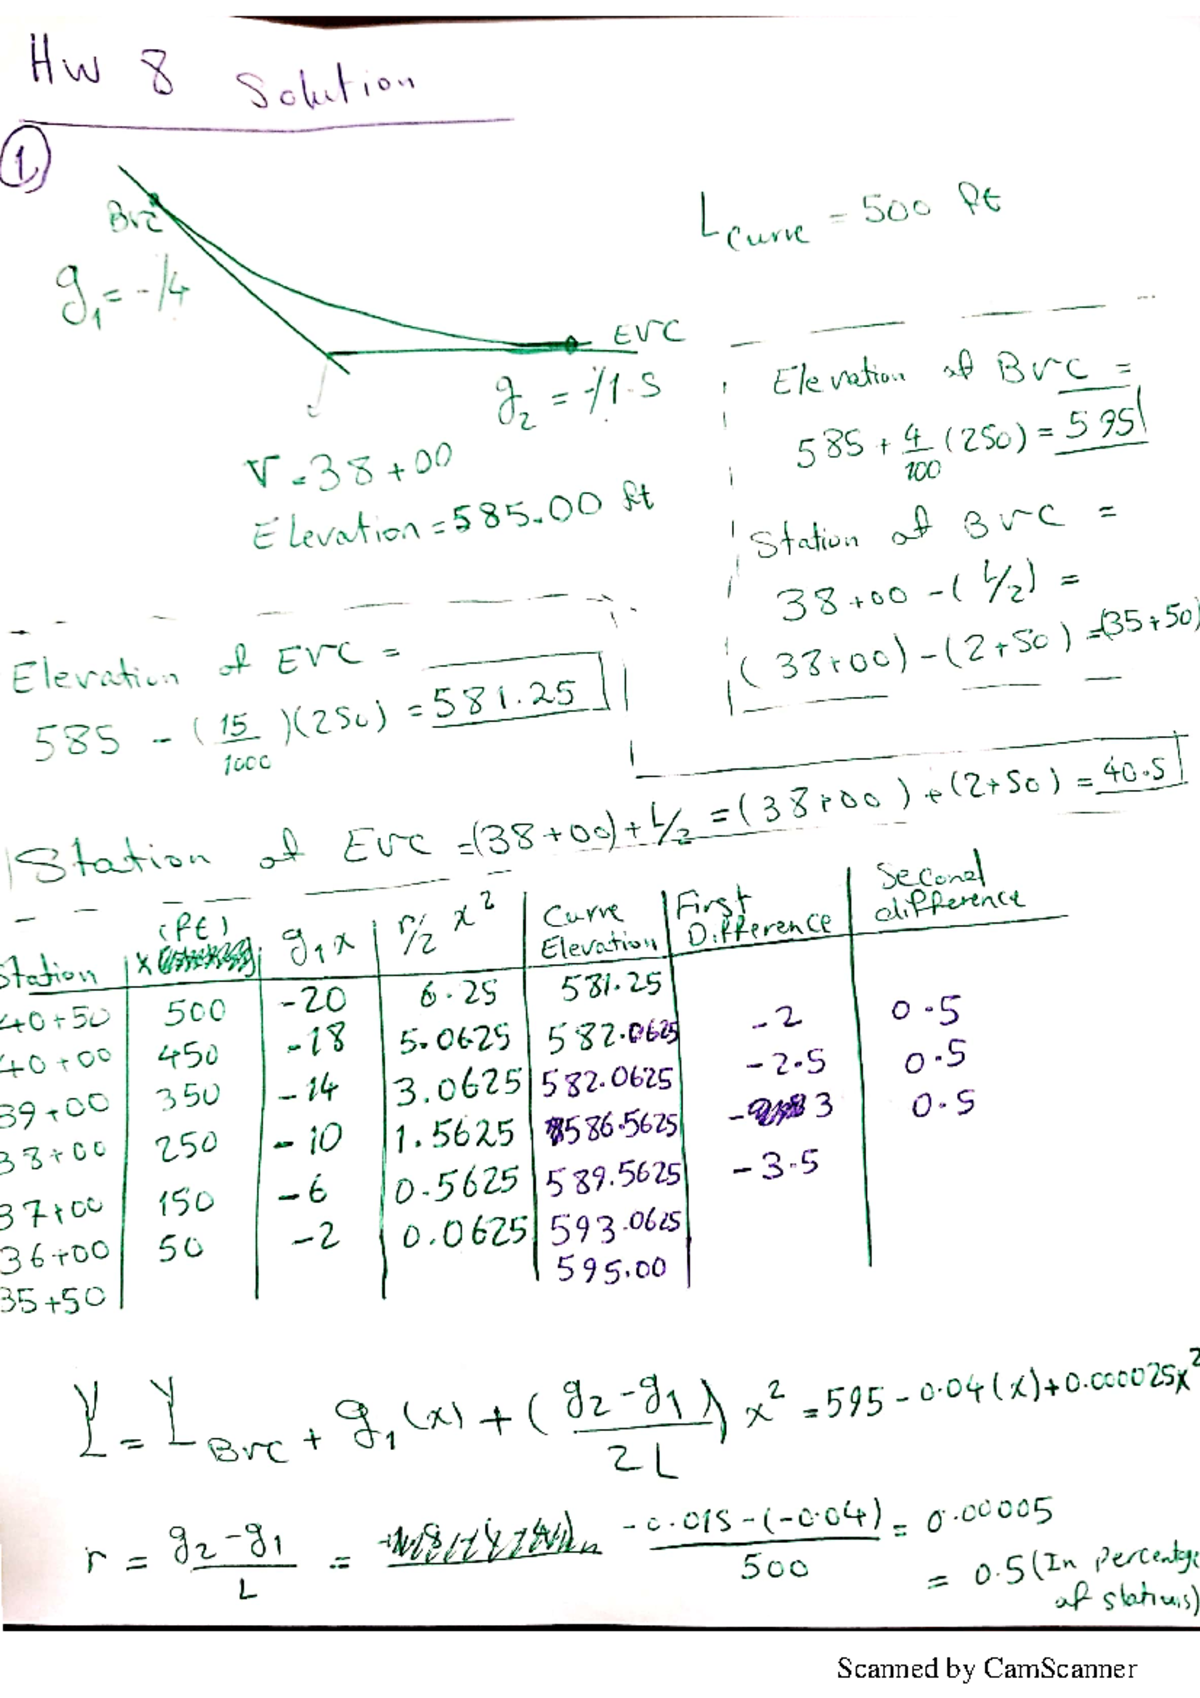 HW 8 Solution
1
BVC
g1 = -/4
EVC
g2 = -/1.5
V = 38+00
Elevation = 585.00 ft
L Curve = 500 ft
Elevation of BVC =
585 + 4/100 (250) = 595
Station of BVC =
38+00 - (L/2) =
(38+00) - (2+50) = (35+50)
Elevation of EVC =
585 - (15/1000)(250) = 581.25
Station of EVC = (38+00) + L/2 = (38+00) + (2+50) = 40.5
Station | x (ft) | g1x | r/2 x² | Curve Elevation | First Difference | Second difference
40+50 | 500 | -20 | 6.25 | 581.25
40+00 | 450 | -18 | 5.0625 | 582.0625 | -2 | 0.5
39+00 | 350 | -14 | 3.0625 | 582.0625 | -2.5 | 0.5
38+00 | 250 | -10 | 1.5625 | 586.5625 | -3 | 0.5
37+00 | 150 | -6 | 0.5625 | 589.5625 | -3.5
36+00 | 50 | -2 | 0.0625 | 593.0625
35+50 | 595.00
Y = Y BVC + g1(x) + (g2-g1/2L) x² = 595 - 0.04(x) + 0.000025x²
r = g2-g1/L = -0.015-(-0.04)/500 = 0.00005
= 0.5 (In percentage of stations)
Scanned by CamScanner